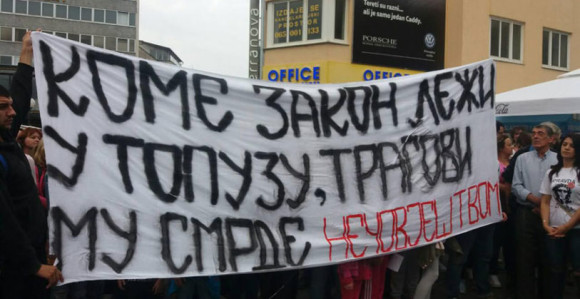 Tereti su razni...
ali je samo jedan Caddy.
PORSCHE
IZDAJE SE
KANCELARIJSKI
PROSTOR
OFFICE
OFFICE
КОМЕ ЗАКОН ЛЕЖИ
У ТОПУЗУ, ТРАГОВИ
МУ СМРДЕ НЕЧОВЈЕШТВОМ